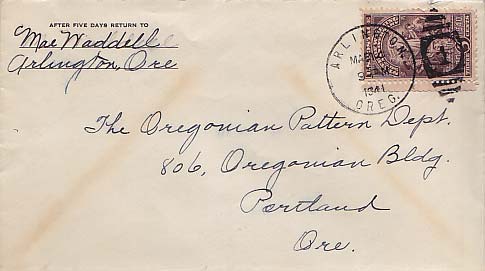 AFTER FIVE DAYS RETURN TO
Mae Waddell
Arlington, Ore
ARLINGTON
1941
OREG.
The Oregonian Pattern Dept.
806, Oregonian Bldg.
Portland
Ore.